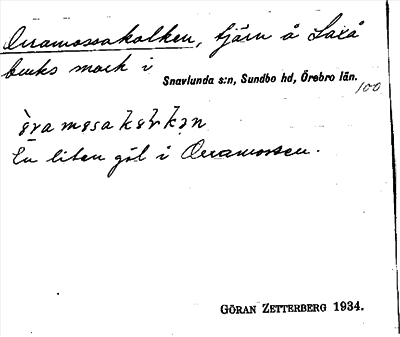 Orramossakalken, tjärn å Laxå
bruks mark i
Snavlunda s:n, Sundbo hd, Örebro län.
100
En liten göl i Orramossen.
GÖRAN ZETTERBERG 1934.